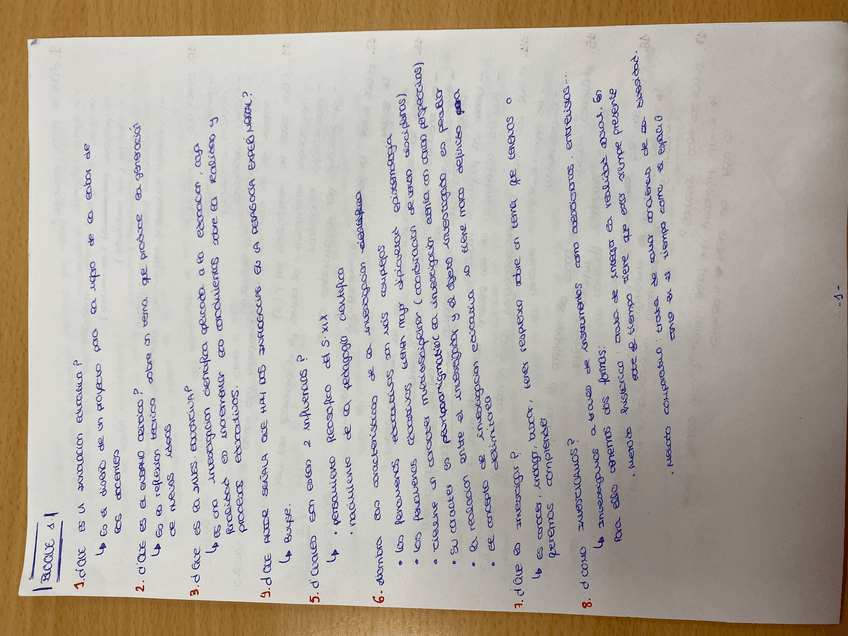 BLOQUE 1
1. ¿Qué es la innovación educativa?
↳ Es el diseño de un proyecto para la mejora de la labor de
los docentes
2. ¿Qué es el ensayo teórico?
↳ Es la reflexión teórica sobre un tema, que produce la generación
de nuevas ideas
3. ¿Qué es la inves. educativa?
↳ Es una investigación científica aplicada a la educación, cuya
finalidad es incrementar los conocimientos sobre la realidad y
procesos educativos.
4. ¿Qué autor señala que hay dos influencias en la pedagogía experimental?
↳ Buyse.
5. ¿Cuáles son estas 2 influencias?
↳ • pensamiento filosófico del S.XIX
• nacimiento de la pedagogía científica
6. Nombra las características de la investigación científica
• Los fenómenos educativos son más complejos
• Los fenómenos educativos tienen mayor dificultad epistemológica
• Tiene un carácter interdisciplinar (combinación de varias disciplinas)
• Su carácter es pluriparadigmático (la investigación cuenta con varias perspectivas)
• La relación entre el investigador y el objeto investigado es peculiar
• El concepto de investigación educativa no tiene marco definido
delimitada
7. ¿Qué es investigar?
↳ es conocer, indagar, buscar, tener respuestas sobre un tema que tenemos o
queremos comprender
8. ¿Cómo investigamos?
↳ Investigamos a través de instrumentos como cuestionarios, entrevistas...
Para ello tenemos dos formas:
• Método histórico: trata de indagar la realidad social, en
este el tiempo tiene que estar siempre presente
• Método comparativo: trata de tomar conciencia de la diversidad,
tanto en el tiempo como el espacio
-1-